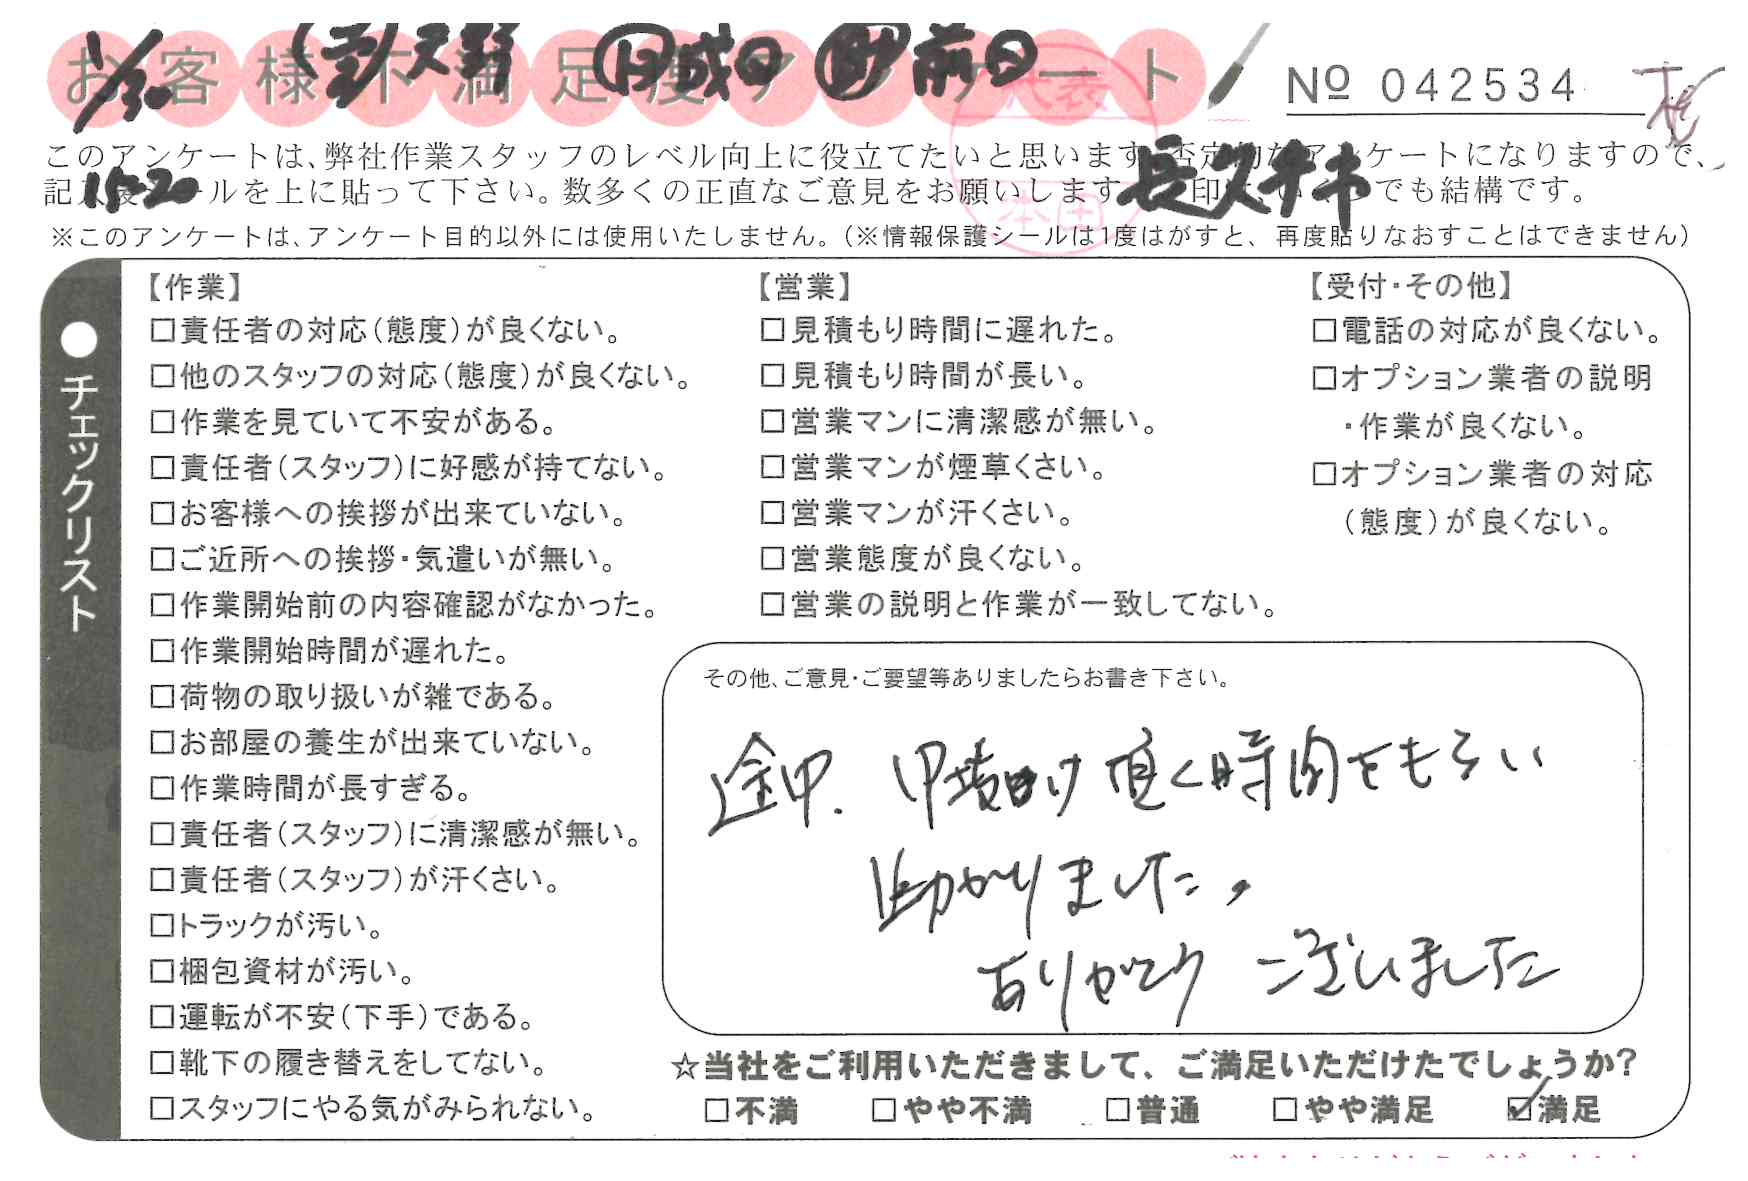 1/30
お客様不満足度アンケート
No 042534
このアンケートは、弊社作業スタッフのレベル向上に役立てたいと思います。否定的なアンケートになりますので、
15:20
記入後シールを上に貼って下さい。数多くの正直なご意見をお願いします でも結構です。
※このアンケートは、アンケート目的以外には使用いたしません。（※情報保護シールは1度はがすと、再度貼りなおすことはできません）
●チェックリスト
【作業】
□責任者の対応（態度）が良くない。
□他のスタッフの対応（態度）が良くない。
□作業を見ていて不安がある。
□責任者（スタッフ）に好感が持てない。
□お客様への挨拶が出来ていない。
□ご近所への挨拶・気遣いが無い。
□作業開始前の内容確認がなかった。
□作業開始時間が遅れた。
□荷物の取り扱いが雑である。
□お部屋の養生が出来ていない。
□作業時間が長すぎる。
□責任者（スタッフ）に清潔感が無い。
□責任者（スタッフ）が汗くさい。
□トラックが汚い。
□梱包資材が汚い。
□運転が不安（下手）である。
□靴下の履き替えをしてない。
□スタッフにやる気がみられない。
【営業】
□見積もり時間に遅れた。
□見積もり時間が長い。
□営業マンに清潔感が無い。
□営業マンが煙草くさい。
□営業マンが汗くさい。
□営業態度が良くない。
□営業の説明と作業が一致してない。
【受付・その他】
□電話の対応が良くない。
□オプション業者の説明
・作業が良くない。
□オプション業者の対応
（態度）が良くない。
その他、ご意見・ご要望等ありましたらお書き下さい。
途中、 頂く時間をもらい
助かりました。
ありがとうございました
☆当社をご利用いただきまして、ご満足いただけたでしょうか?
□不満 □やや不満 □普通 □やや満足 ☑満足